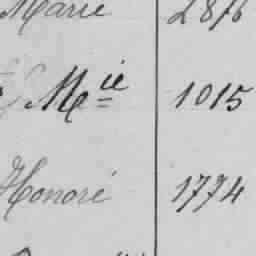 Marie 2876
Mie 1015
Honoré 1774